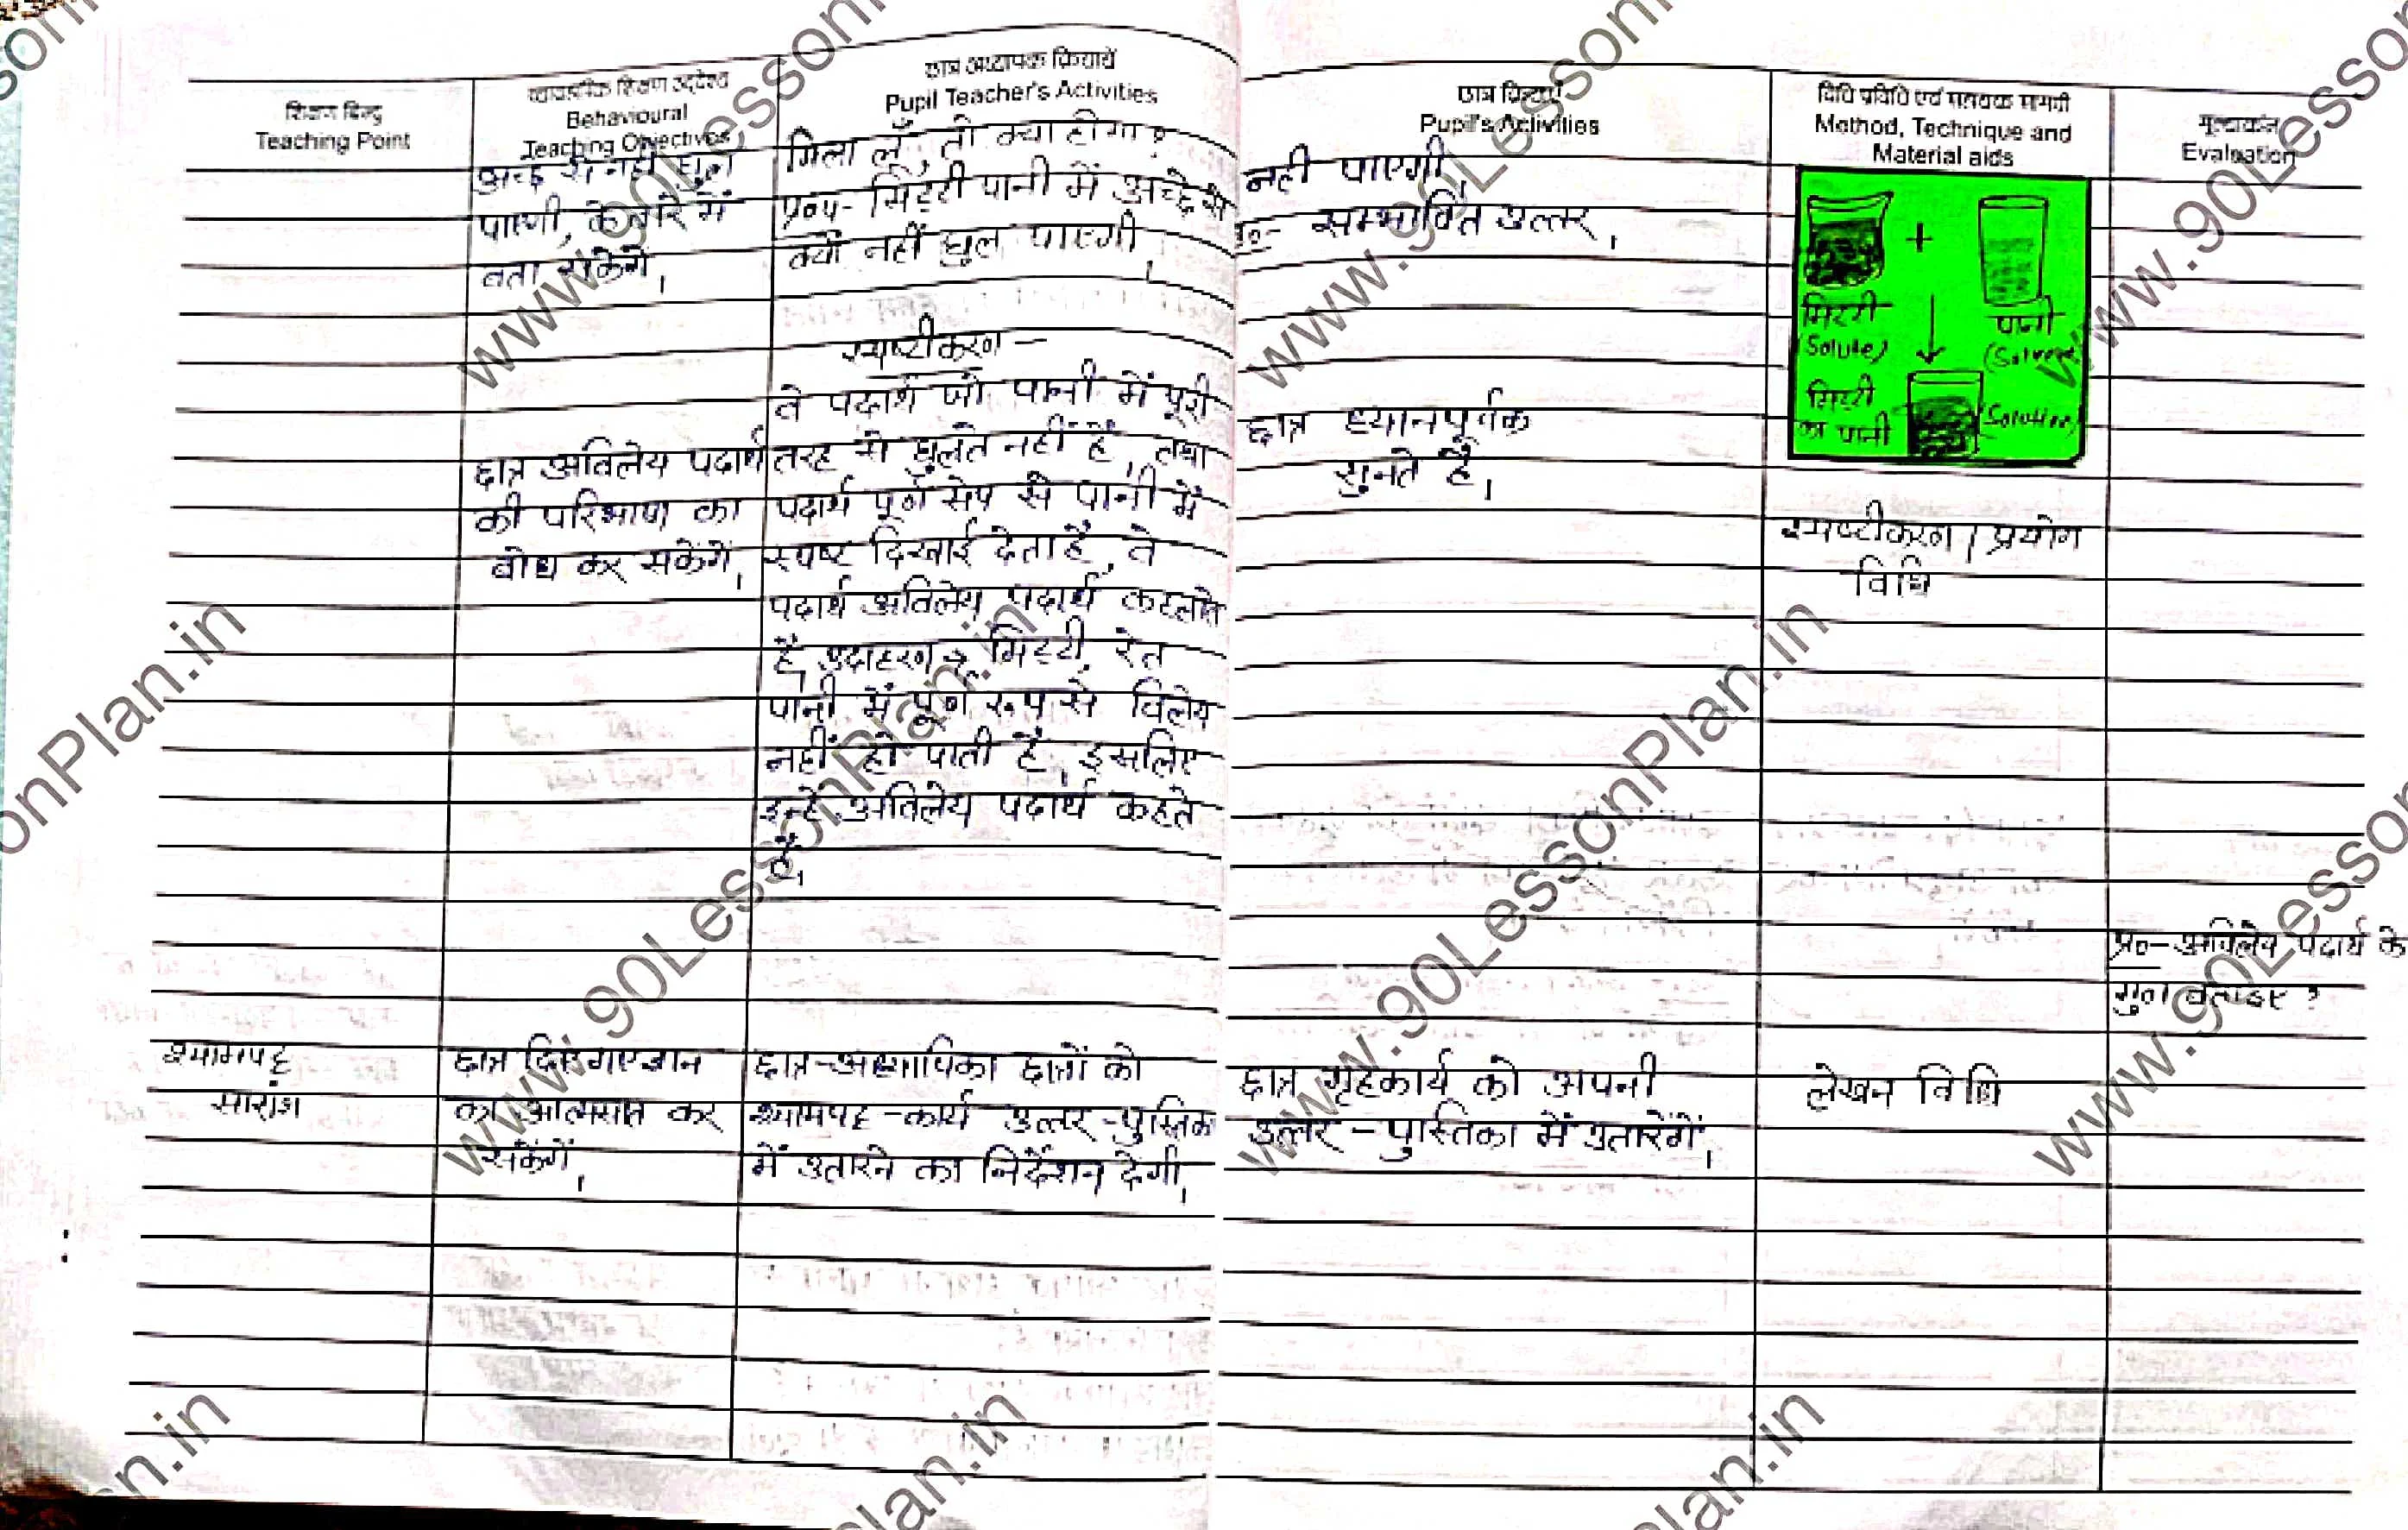 शिक्षण बिन्दु
Teaching Point
व्यावहारिक शिक्षण उद्देश्य
Behavioural
Teaching Objectives
अच्छे से नहीं घुल
पाएगी, के बारे में
बता सकेंगे।
छात्र अविलेय पदार्थ
की परिभाषा का
बोध कर सकेंगें।
छात्र अध्यापक क्रियायें
Pupil Teacher's Activities
मिला लूँ, तो क्या होगा?
प्र०५- मिट्टी पानी में अच्छे से
क्यों नहीं घुल पाएगी।
स्पष्टीकरण —
वे पदार्थ जो पानी में पूरी
तरह से घुलते नहीं हैं, तथा
पदार्थ पूर्ण से पानी में
स्पष्ट दिखाई देता है, वे
पदार्थ अविलेय पदार्थ कहलाते
हैं। उदाहरण → मिट्टी, रेत
पानी में पूर्ण रूप से विलेय
नहीं हो पाती हैं, इसलिए
इन्हें अविलेय पदार्थ कहते
हैं।
श्यामपट्ट
सारांश
छात्र दिए गए ज्ञान
का आत्मसात कर
सकेंगें।
छात्र-अध्यापिका छात्रों को
श्यामपट्ट-कार्य उत्तर-पुस्तिका
में उतारने का निर्देशन देगी।
छात्र क्रियायें
Pupil's Activities
नहीं पाएगी।
उ०- सम्भावित उत्तर।
छात्र ध्यानपूर्वक
सुनते हैं।
छात्र गृहकार्य को अपनी
उत्तर-पुस्तिका में उतारेंगें।
विधि प्रविधि एवं सहायक सामग्री
Method, Technique and
Material aids
+
मिट्टी
(Solute)
पानी
(Solvent)
मिट्टी
का पानी
(Solution)
स्पष्टीकरण / प्रयोग
विधि
लेखन विधि
मूल्यांकन
Evaluation
प्र०- अविलेय पदार्थ के
गुण बताइए?
www.90LessonPlan.in
www.90LessonPlan.in
www.90LessonPlan.in